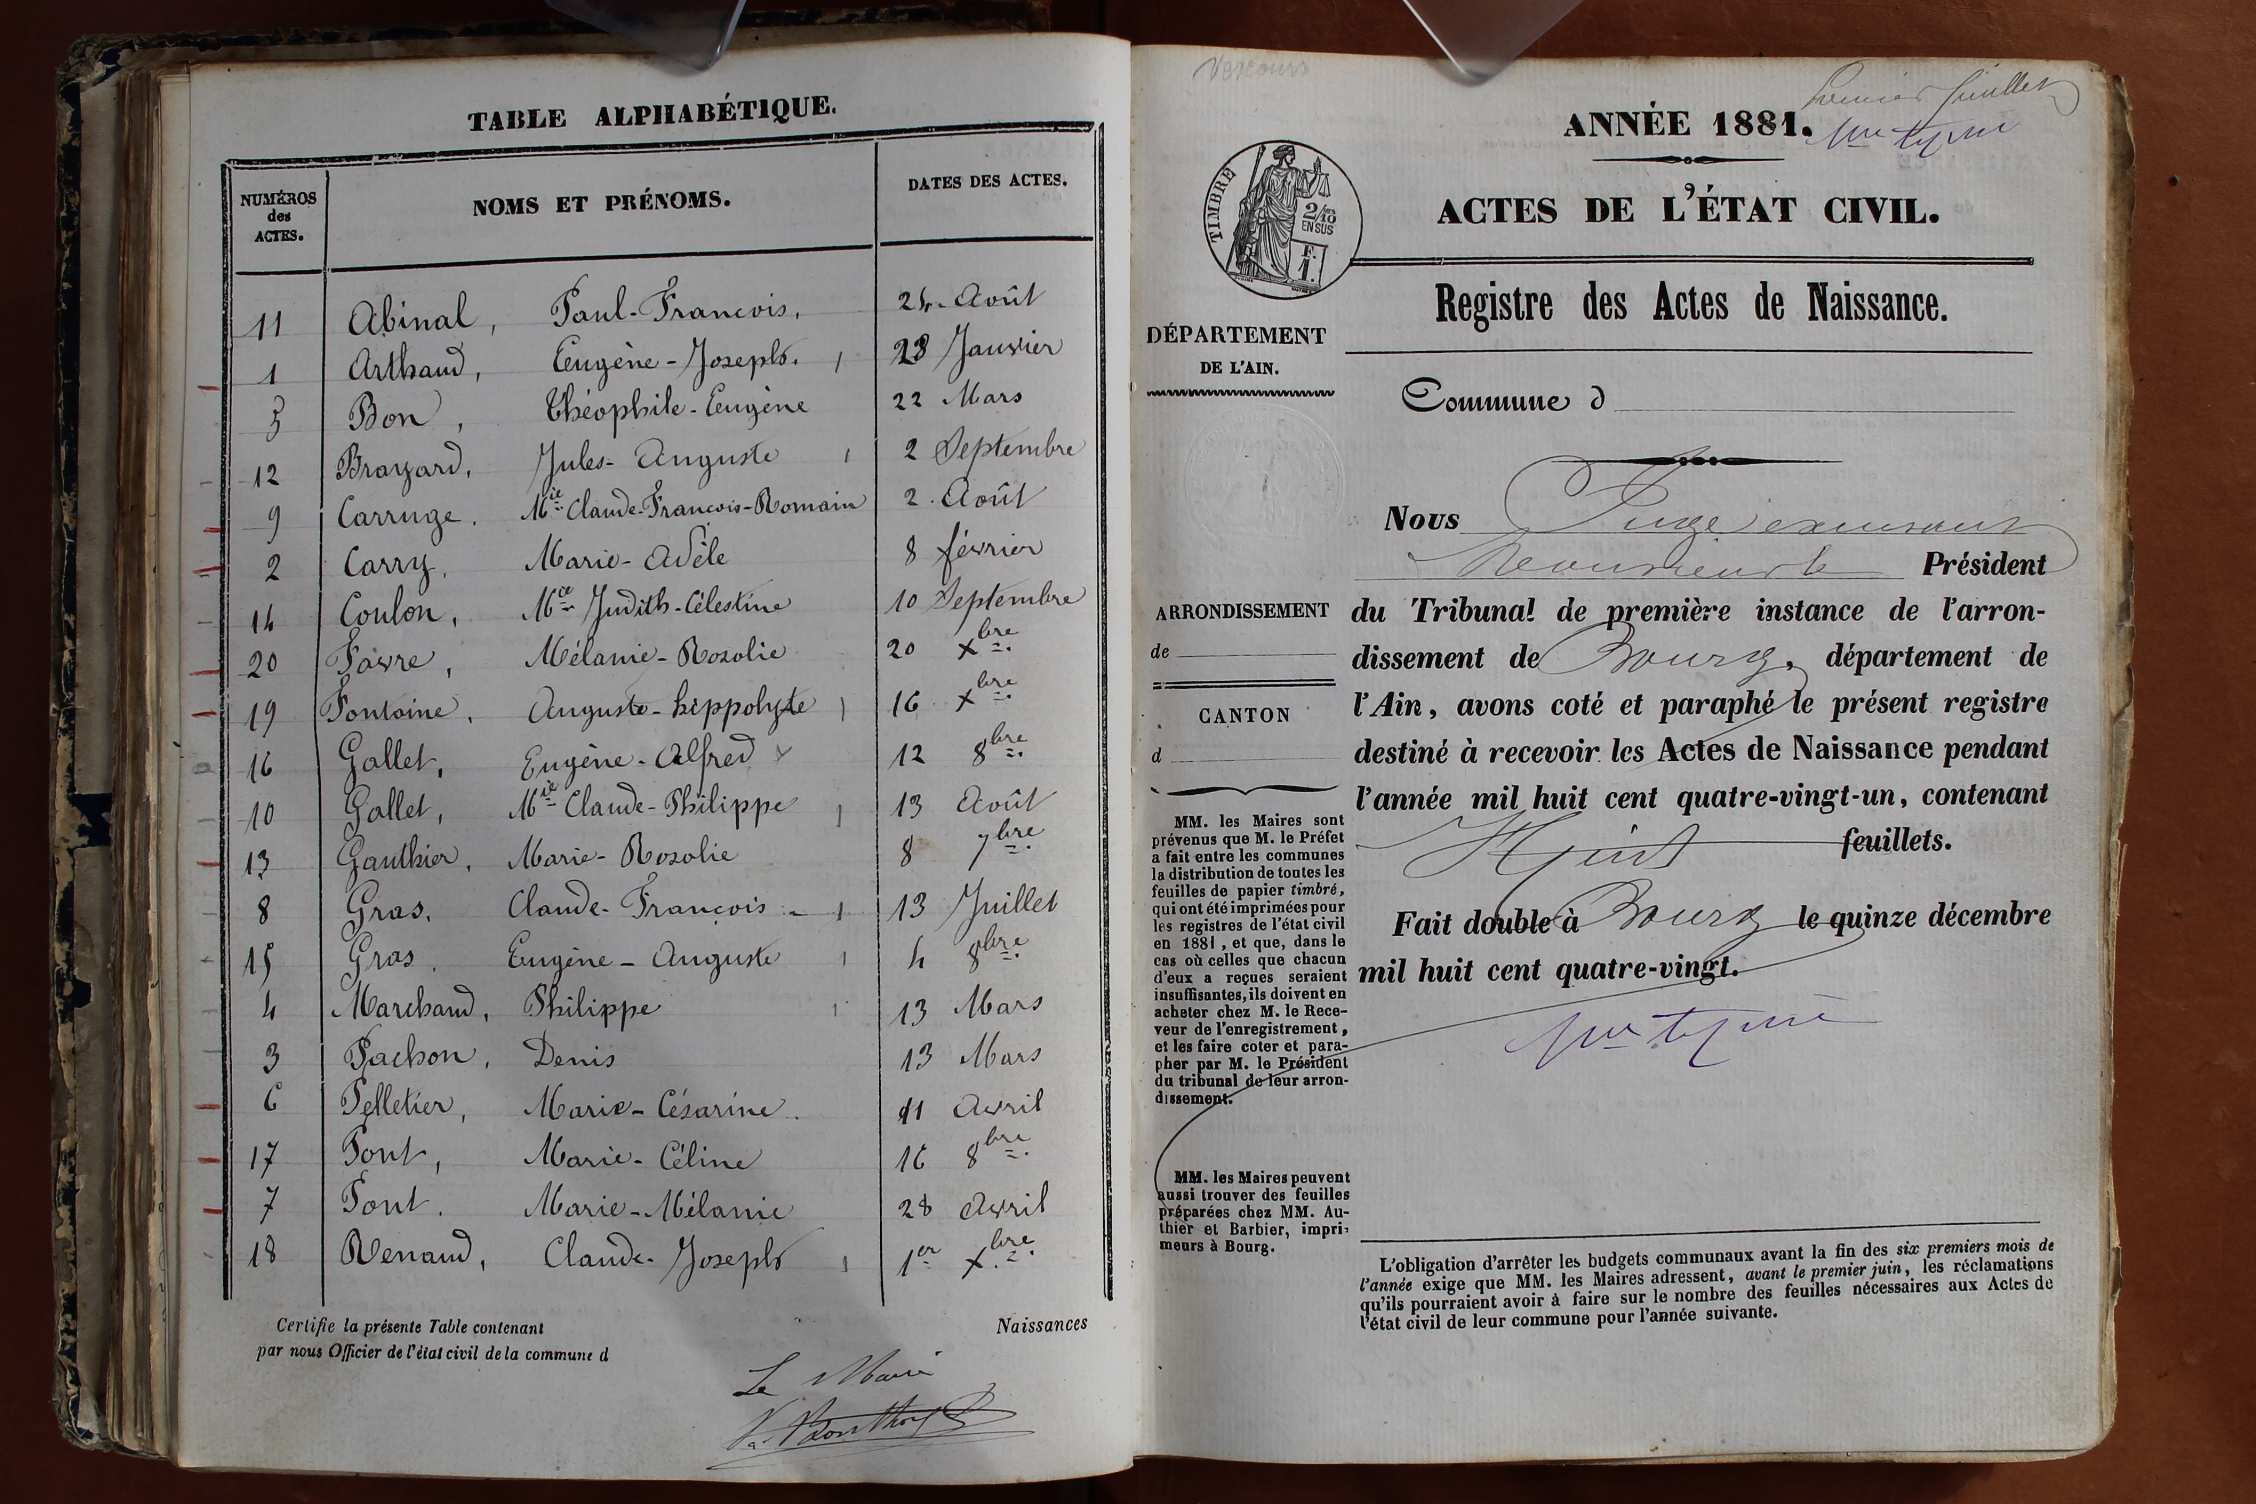 TABLE ALPHABÉTIQUE.
NUMÉROS des ACTES.
NOMS ET PRÉNOMS.
DATES DES ACTES.
11 Abinal, Paul-François, 24 Août
1 Arthaud, Eugène-Joseph. 23 Janvier
5 Bon, Théophile-Eugène 22 Mars
12 Brayard, Jules-Auguste 2 Septembre
9 Carruge. Mie Claude-François-Romain 2. Août
2 Carry, Marie-Adèle 8 février
14 Coulon, Mce Judith-Célestine 10 Septembre
20 Favre, Mélanie-Rosalie 20 Xbre
19 Fontaine, Auguste-hippolyte 16 Xbre
16 Gallet, Eugène-Alfred 12 8bre
10 Gallet, Mie Claude-Philippe 13 Août
13 Gauthier, Marie-Rosalie 8 7bre
8 Gras, Claude-François 13 Juillet
15 Gras. Eugène-Auguste 4 8bre
4 Marchand, Philippe 13 Mars
3 Pachon, Denis 13 Mars
6 Pelletier, Marie-Césarine. 11 Avril
17 Pont, Marie-Céline 16 8bre
7 Pont. Marie-Mélanie 28 Avril
18 Renaud, Claude-Joseph 1er Xbre
Certifie la présente Table contenant Naissances
par nous Officier de l'état civil de la commune d
Le Maire
Premier feuillet
ANNÉE 1881.
TIMBRE
2/10
EN SUS
F.
1.
ACTES DE L'ÉTAT CIVIL.
Registre des Actes de Naissance.
DÉPARTEMENT
DE L'AIN.
Commune d
Nous Juge
Président
ARRONDISSEMENT
de
CANTON
d
du Tribunal de première instance de l'arron-
dissement de Bourg, département de
l'Ain, avons coté et paraphé le présent registre
destiné à recevoir les Actes de Naissance pendant
l'année mil huit cent quatre-vingt-un, contenant
Huit feuillets.
Fait double à Bourg le quinze décembre
mil huit cent quatre-vingt.
MM. les Maires sont
prévenus que M. le Préfet
a fait entre les communes
la distribution de toutes les
feuilles de papier timbré,
qui ont été imprimées pour
les registres de l'état civil
en 1881, et que, dans le
cas où celles que chacun
d'eux a reçues seraient
insuffisantes, ils doivent en
acheter chez M. le Rece-
veur de l'enregistrement,
et les faire coter et para-
pher par M. le Président
du tribunal de leur arron-
dissement.
MM. les Maires peuvent
aussi trouver des feuilles
préparées chez MM. Au-
thier et Barbier, impri-
meurs à Bourg.
L'obligation d'arrêter les budgets communaux avant la fin des six premiers mois de
l'année exige que MM. les Maires adressent, avant le premier juin, les réclamations
qu'ils pourraient avoir à faire sur le nombre des feuilles nécessaires aux Actes de
l'état civil de leur commune pour l'année suivante.